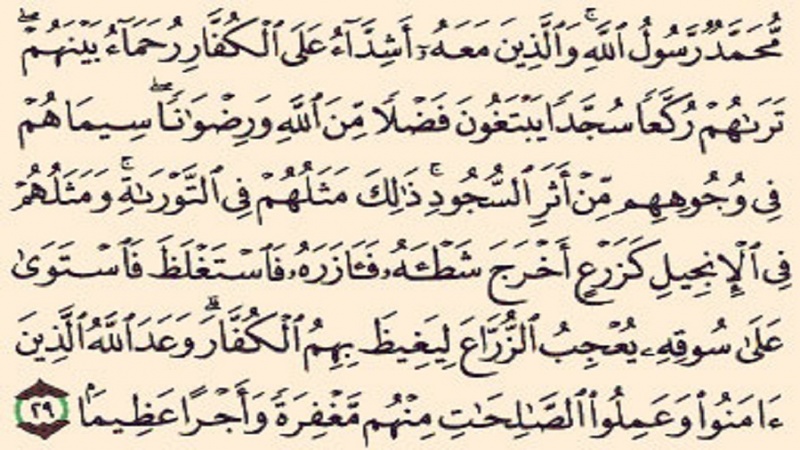 مُّحَمَّدٌ رَّسُولُ ٱللَّهِۚ وَٱلَّذِينَ مَعَهُۥٓ أَشِدَّآءُ عَلَى ٱلْكُفَّارِ رُحَمَآءُ بَيْنَهُمْۖ
تَرَىٰهُمْ رُكَّعًا سُجَّدًا يَبْتَغُونَ فَضْلًا مِّنَ ٱللَّهِ وَرِضْوَٰنًاۖ سِيمَاهُمْ
فِى وُجُوهِهِم مِّنْ أَثَرِ ٱلسُّجُودِۚ ذَٰلِكَ مَثَلُهُمْ فِى ٱلتَّوْرَىٰةِۚ وَمَثَلُهُمْ
فِى ٱلْإِنجِيلِ كَزَرْعٍ أَخْرَجَ شَطْـَٔهُۥ فَـَٔازَرَهُۥ فَٱسْتَغْلَظَ فَٱسْتَوَىٰ
عَلَىٰ سُوقِهِۦ يُعْجِبُ ٱلزُّرَّاعَ لِيَغِيظَ بِهِمُ ٱلْكُفَّارَۗ وَعَدَ ٱللَّهُ ٱلَّذِينَ
ءَامَنُوا۟ وَعَمِلُوا۟ ٱلصَّـٰلِحَـٰتِ مِنْهُم مَّغْفِرَةً وَأَجْرًا عَظِيمًۢا ٢٩